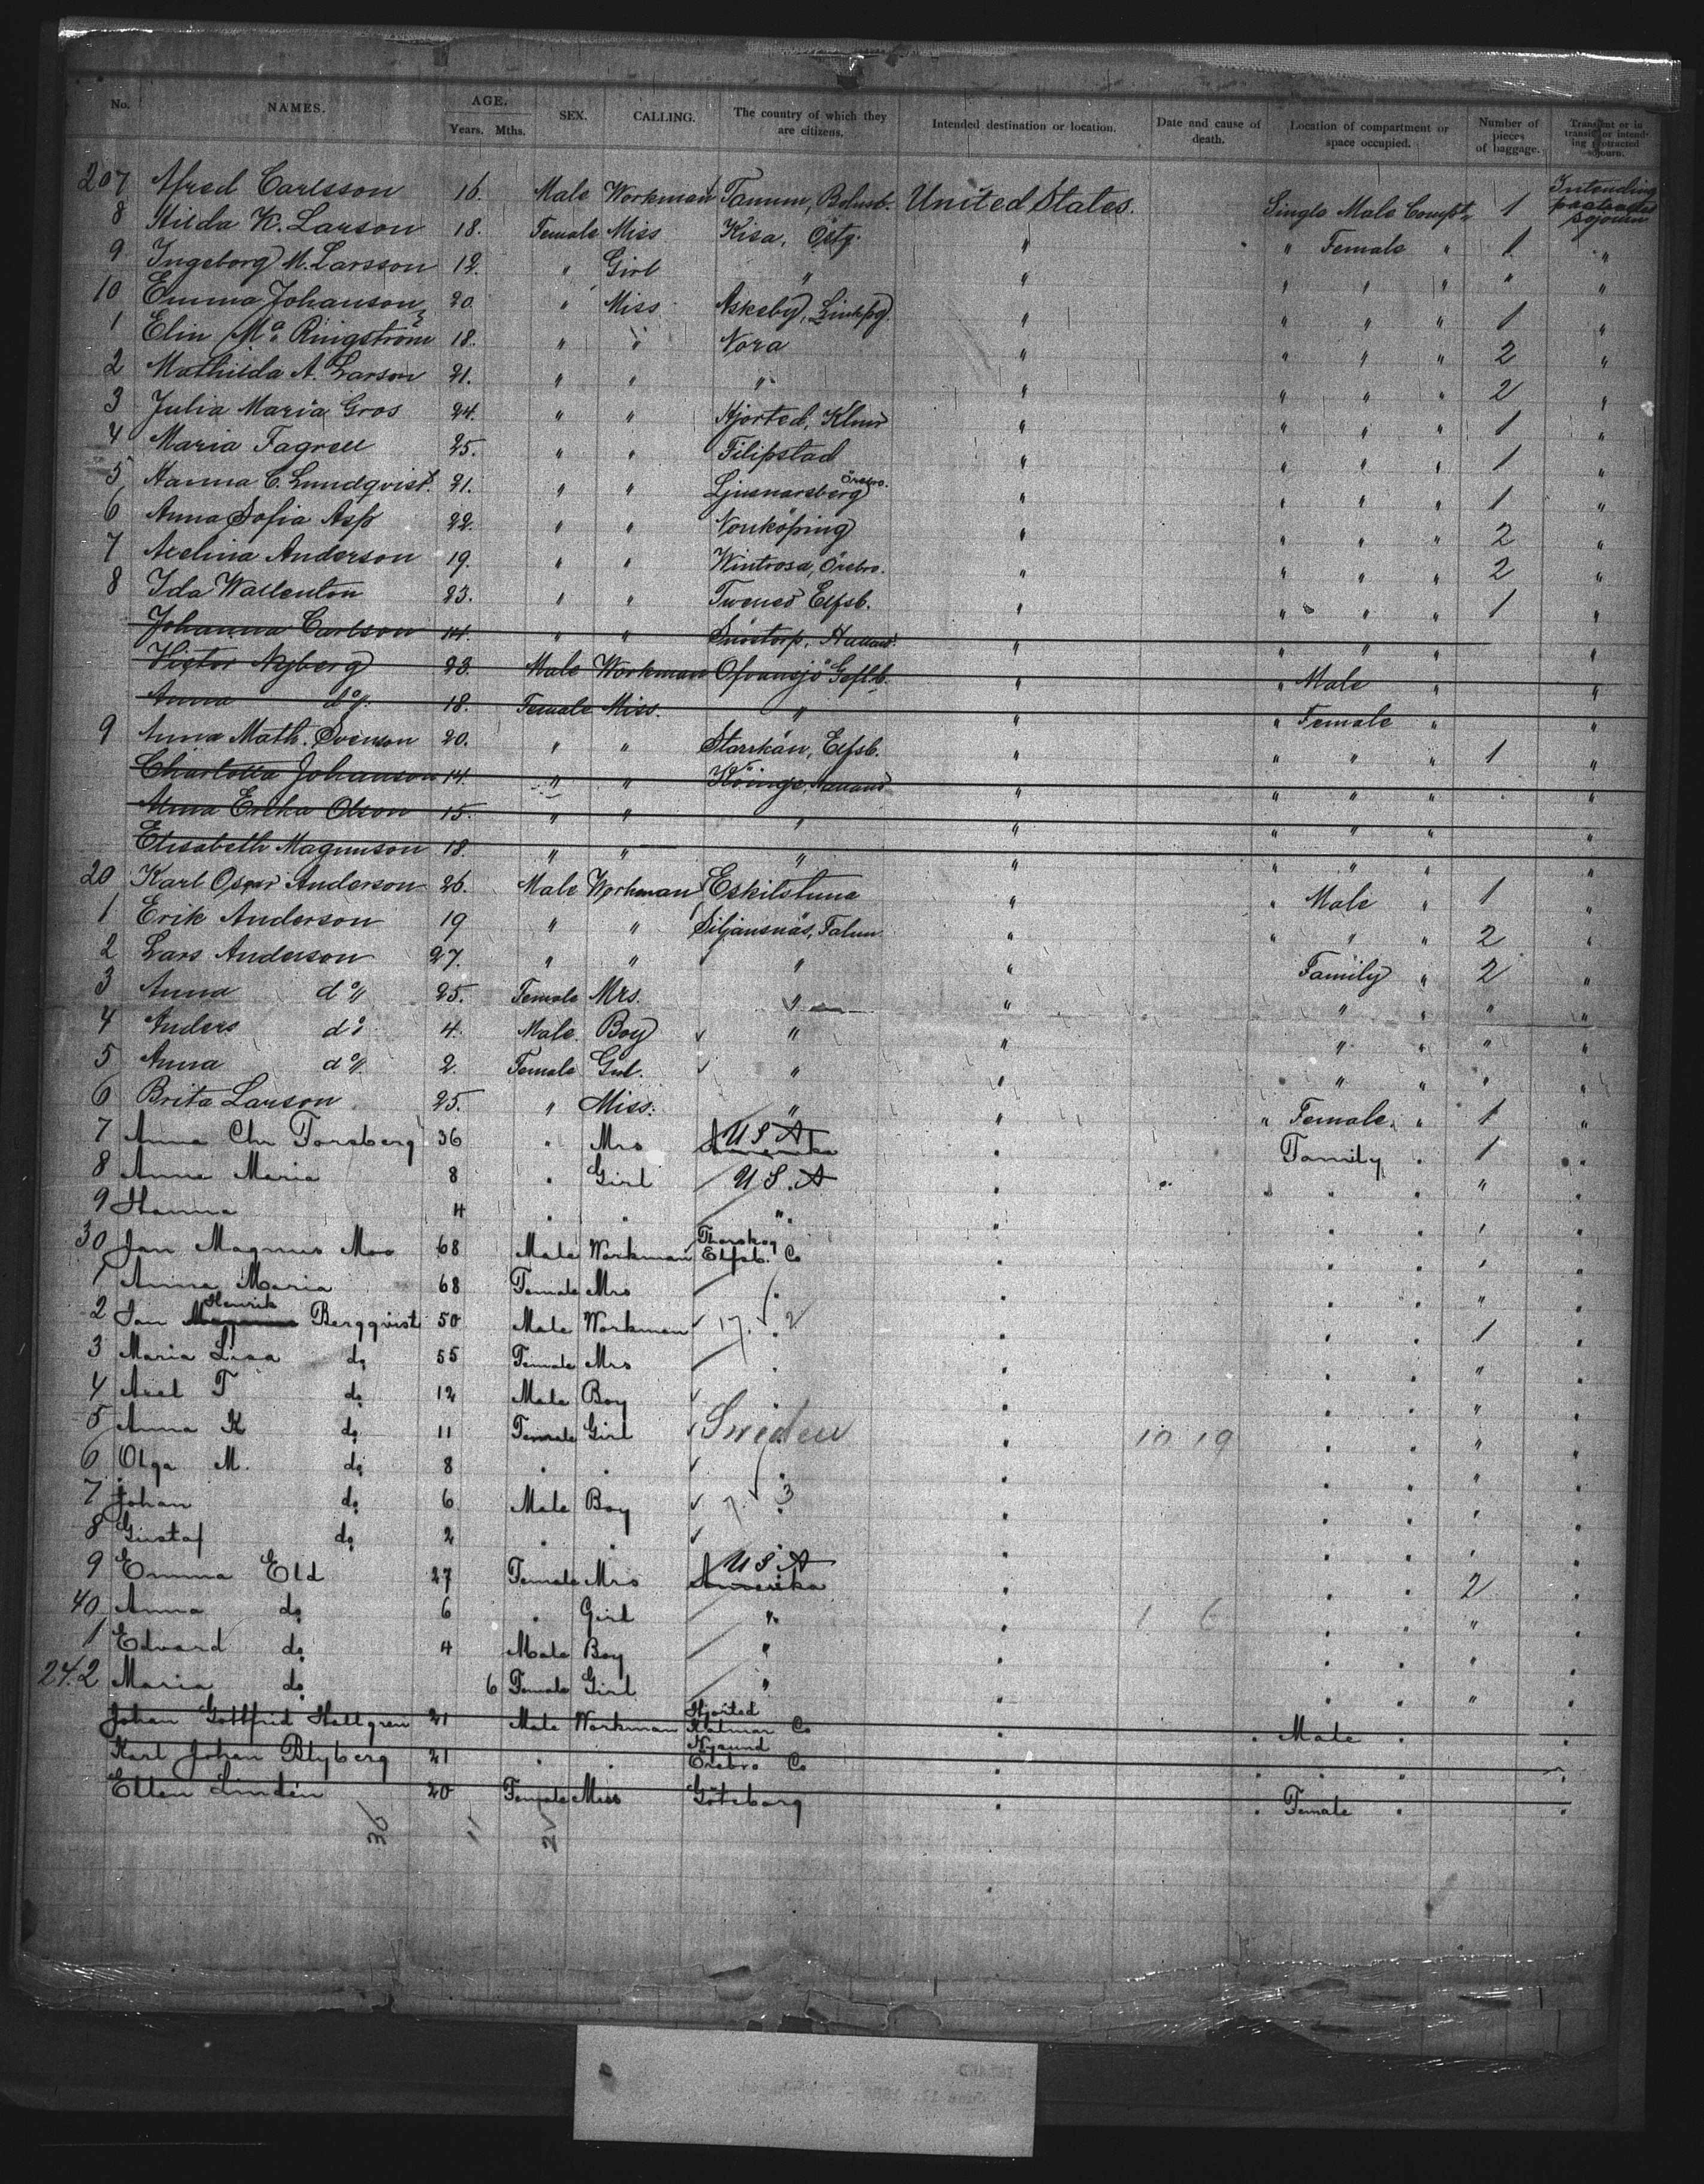 No. NAMES. AGE. Years. Mths. SEX. CALLING. The country of which they are citizens. Intended destination or location. Date and cause of death. Location of compartment or space occupied. Number of pieces of baggage. Transient or in transit or intending protracted sojourn.
207 Afred Carlsson 16. Male Workman Tanum, Bohusl. United States. Single Male Compt. 1 Intending protracted sojourn
8 Hilda K. Larson 18. Female Miss Kisa, Östg. " " Female " 1 "
9 Ingeborg M. Larsson 12. " Girl " " " " " " "
10 Emma Johanson 20. " Miss Askeby, Linkpg. " " " " 1 "
1 Elin Ma Ringström 18. " " Nora " " " " 2 "
2 Mathilda A. Larson 21. " " " " " " " 2 "
3 Julia Maria Gros 24. " " Hjorted, Klmr " " " " 1 "
4 Maria Fagrell 25. " " Filipstad " " " " 1 "
5 Hanna C. Lundqvist. 21. " " Ljusnarsberg Örebro. " " " " 1 "
6 Anna Sofia Asp 22. " " Norrköping " " " " 2 "
7 Avelina Anderson 19. " " Wintrosa, Örebro. " " " " 2 "
8 Ida Wallenton 23. " " Elfsb. " " " " 1 "
Johanna Carlson 14. " " Snöstorp, Halland. " " " " "
Victor Nyberg 23. Male Workman Ofvansjö Geflb. " " Male " "
Anna do 18. Female Miss. " " " Female " "
9 Anna Math. Svenson 20. " " Starrkärr, Elfsb. " " " " 1 "
Charlotta Johanson 14. " " Köinge, Halland " " " " "
Anna Erika Olson 15. " " " " " " " "
Elisabeth Magnuson 18. " " " " " " " "
20 Karl Oscar Anderson 26. Male Workman Eskilstuna " " Male " 1 "
1 Erik Anderson 19 " " Siljansnäs, Falun. " " " " 2 "
2 Lars Anderson 27. " " " " Family " 2 "
3 Anna do 25. Female Mrs. " " " " " "
4 Anders do 4. Male. Boy " " " " " "
5 Anna do 2. Female Girl. " " " " " "
6 Brita Larson 25. " Miss. " " " Female " 1 "
7 Anna Chr Forsberg 36 " Mrs Amerika U S A " Family " 1 "
8 Anna Maria 8 " Girl U S. A " " " " "
9 Hanna 4 " " " " " " " "
30 Jan Magnus Moo 68 Male Workman Thorskog Elfsb. Co " " " " "
1 Anna Maria 68 Female Mrs " " " " " "
2 Jan Henrik Bergqvist 50 Male Workman 17. 2 " " " " 1 "
3 Maria Lisa do 55 Female Mrs " " " " " "
4 Axel F do 12 Male Boy " " " " " "
5 Anna K do 11 Female Girl Sweden " 10 19 " " " "
6 Olga M. do 8 " " " " " " " "
7 Johan do 6 Male Boy 7. 3 " " " " " "
8 Gustaf do 2 " " " " " " " "
9 Emma Eld 27 Female Mrs Amerika U S A " " " 2 "
40 Anna do 6 " Girl " " 1 6 " " " "
1 Edvard do 4 Male Boy " " " " " "
242 Maria do 6 Female Girl " " " " " "
Johan Gottfrid Hallgren 21 Male Workman Hjorted Kalmar Co " " Male " "
Karl Johan Blyberg 21 " " Nysund Örebro Co " " " " "
Ellen Lindén 20 Female Miss Göteborg " " Female " "
36 11 2